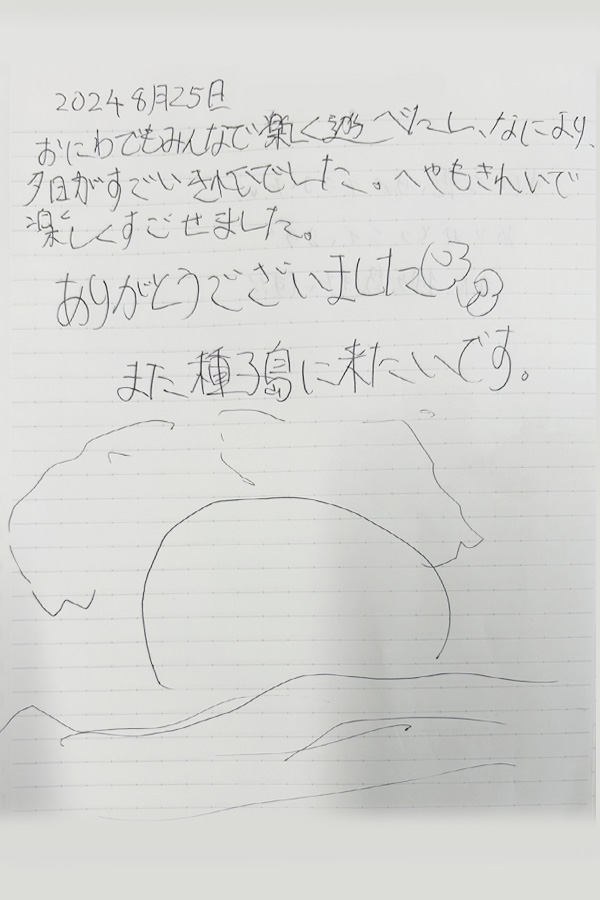 2024 8月25日
おにわでもみんなで楽しく遊べたし、なにより、
夕日がすごいきれいでした。へやもきれいで
楽しくすごせました。
ありがとうございました
また種子島に来たいです。